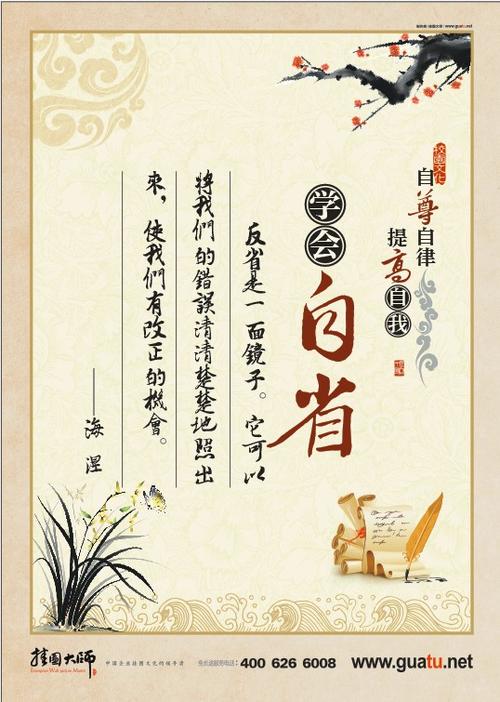 www.guatu.net
校園文化
自尊自律
提高自我
学会
自省
反省是一面鏡子。它可以
將我們的錯誤清清楚楚地照出
來，使我們有改正的機會。
——海涅
挂图大师
中国企业挂图文化的领导者
免长途服务电话：400 626 6008
www.guatu.net